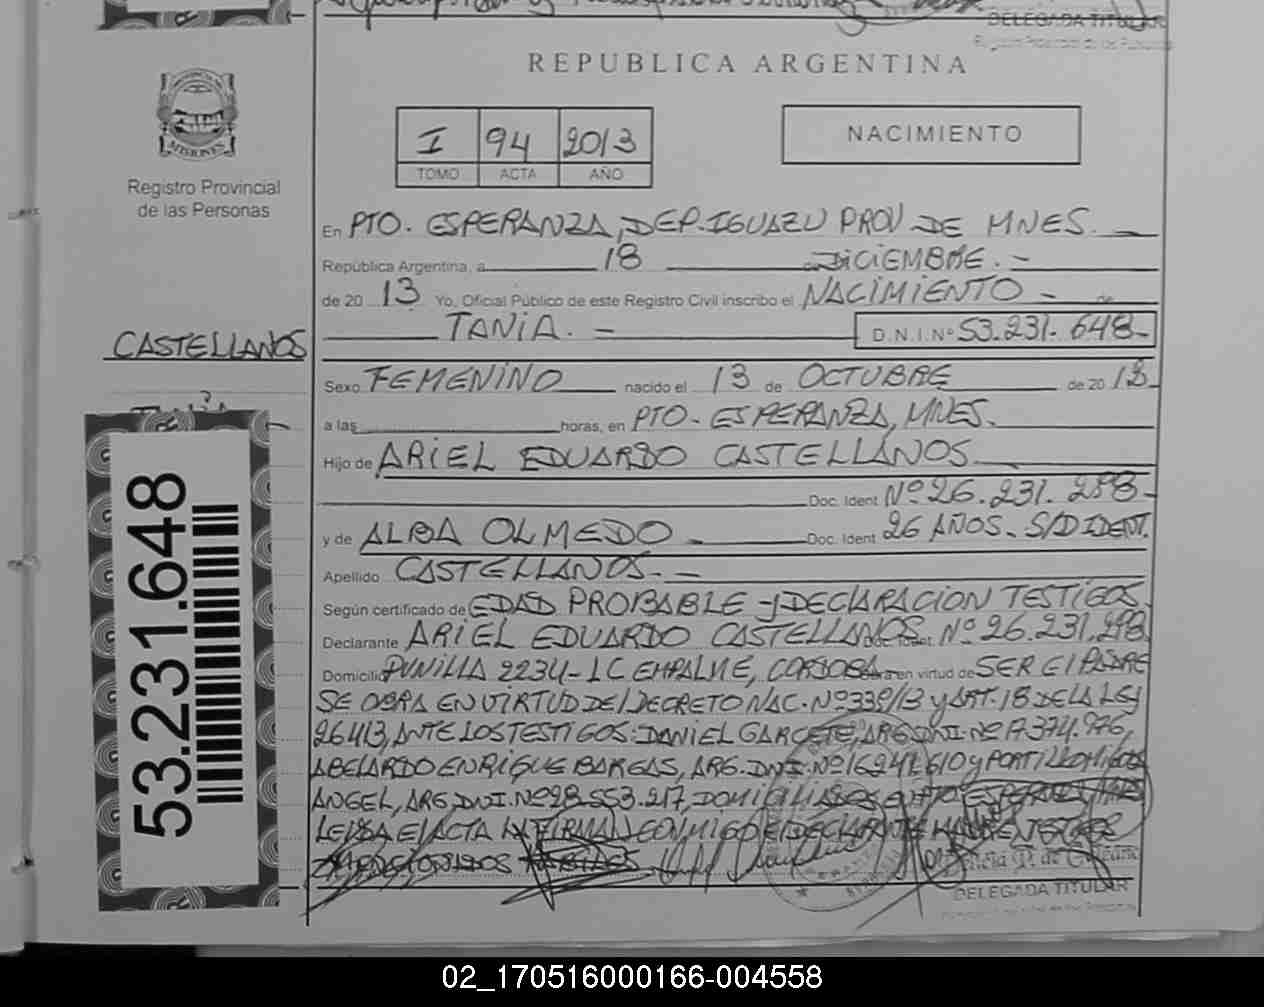 DELEGADA TITULAR
REPUBLICA ARGENTINA
I 94 2013
TOMO ACTA AÑO
NACIMIENTO
MISIONES
Registro Provincial
de las Personas
En PTO. ESPERANZA, DEP. IGUAZU PROV DE MNES.
República Argentina, a 18 DICIEMBRE.
de 20 13 Yo, Oficial Público de este Registro Civil inscribo el NACIMIENTO de
TANIA. D.N.I.Nº 53.231.648
CASTELLANOS
TANIA
Sexo FEMENINO nacido el 13 de OCTUBRE de 20 13
a las horas, en PTO. ESPERANZA, MNES.
Hijo de ARIEL EDUARDO CASTELLANOS
Doc. Ident Nº 26.231.298
y de ALBA OLMEDO Doc. Ident 26 AÑOS. S/D IDENT.
Apellido CASTELLANOS.
Según certificado de EDAD PROBABLE Y DECLARACION TESTIGOS.
Declarante ARIEL EDUARDO CASTELLANOS Doc. Ident. Nº 26.231.298
Domicilio PUNILLA 2234 - LC EMPALME, CORDOBA en virtud de SER El PADRE
SE OBRA EN VIRTUD DEl DECRETO NAC. Nº 339/13 y ART. 18 DE LA LEY
26413, ANTE LOS TESTIGOS: DANIEL GARCETE, ARG. DNI. Nº 17.374.976,
ABELARDO ENRIQUE BARGAS, ARG. DNI. Nº 16241610 y PORTILLO
ANGEL, ARG. DNI. Nº 28.553.217, DOMICILIADOS EN PTO ESPERANZA
LEIDA El ACTA LA FIRMAN CONMIGO El DECLARANTE
MENCIONADOS
DELEGADA TITULAR
53.231.648
02_170516000166-004558